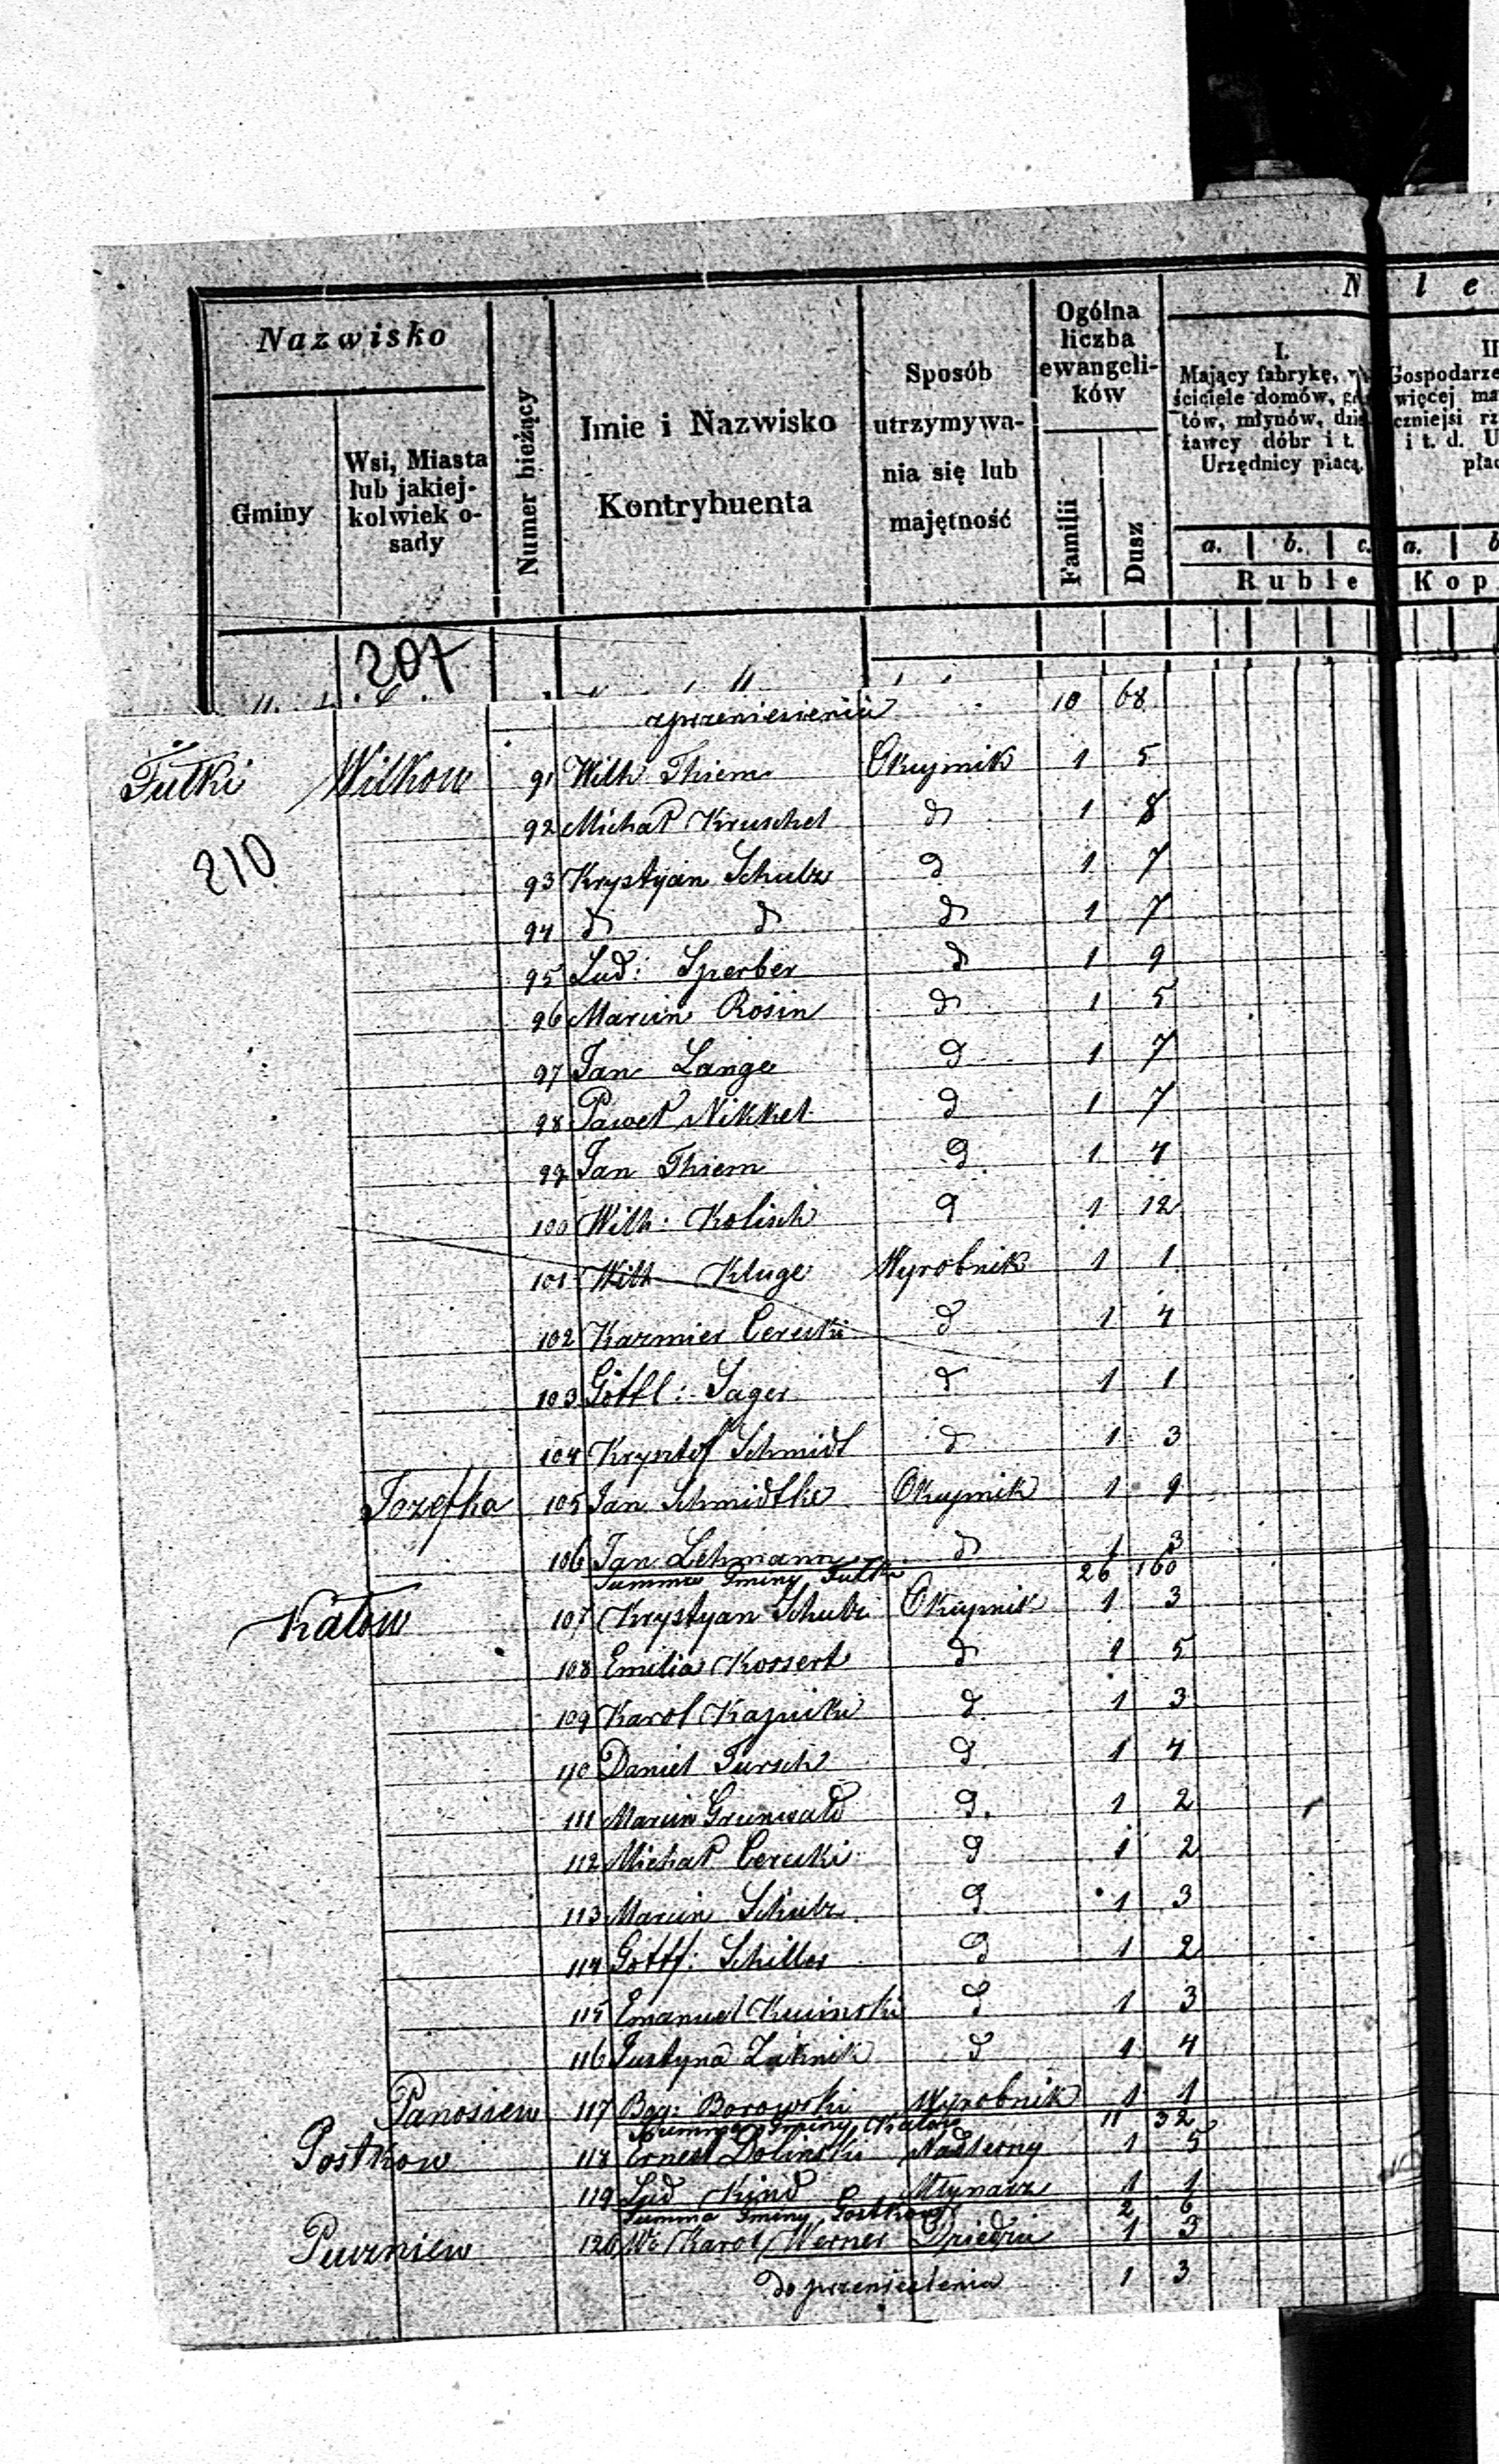 N l e
Nazwisko
Gminy
Wsi, Miasta lub jakiej-kolwiek o-sady
Numer bieżący
Imie i Nazwisko Kontrybuenta
Sposób utrzymywa-nia się lub majętność
Ogólna liczba ewangeli-ków
Familii
Dusz
I.
Mający fabrykę,
ściciele domów,
tów, młynów,
żawcy dóbr i t.
Urzędnicy płacą.
II
Gospodarze
więcej ma
czniejsi rz
i t. d. U
płac
a. b. c. a. b
Ruble Kop
207
z przeniesienia 10 68
Futki Wilkow 91 Wilh Thiem Okupnik 1 5
210
92 Michał Kruschel d 1 8
93 Krystyan Schulz d 1 7
94 d d d 1 7
95 Lud: Sperber d 1 9
96 Marcin Rosin d 1 5
97 Jan Lange d 1 7
98 Paweł Nikkel d 1 7
99 Jan Thiem d. 1 4
100 Wilh: Kolisch d 1 12
101 Wilh Kluge Wyrobnik 1 1
102 Kazmier Cerecki d 1 4
103 Gottl: Sager d 1 1
104 Krysztof Schmidt d 1 3
Jozefka 105 Jan Schmidtke Okupnik 1 9
106 Jan Lehmann d 1 3
Summa Gminy Futki 26 160
Kałow 107 Krystyan Schulz Okupnik 1 3
108 Emilia Kossert d 1 5
109 Karol Kapicki d. 1 3
110 Daniel Tursch d. 1 4
111 Marcin Grunwald d. 1 2
112 Michał Cerecki d 1 2
113 Marcin Schulz d 1 3
114 Gottf: Schiller d 1 2
115 Emanuel Kucinski d 1 3
116 Justyna Zaknik d 1 4
Panosiew 117 Bog: Borowski Wyrobnik 1 1
Summa Gminy Kałow 11 32
Gostkow 118 Ernest Dolinski Nadlesny 1 5
119 Lud Kind Młynarz 1 1
Summa Gminy Gostkow 2 6
Puczniew 120 Wo Karol Werner Dziedzic 1 3
do przeniesienia 1 3